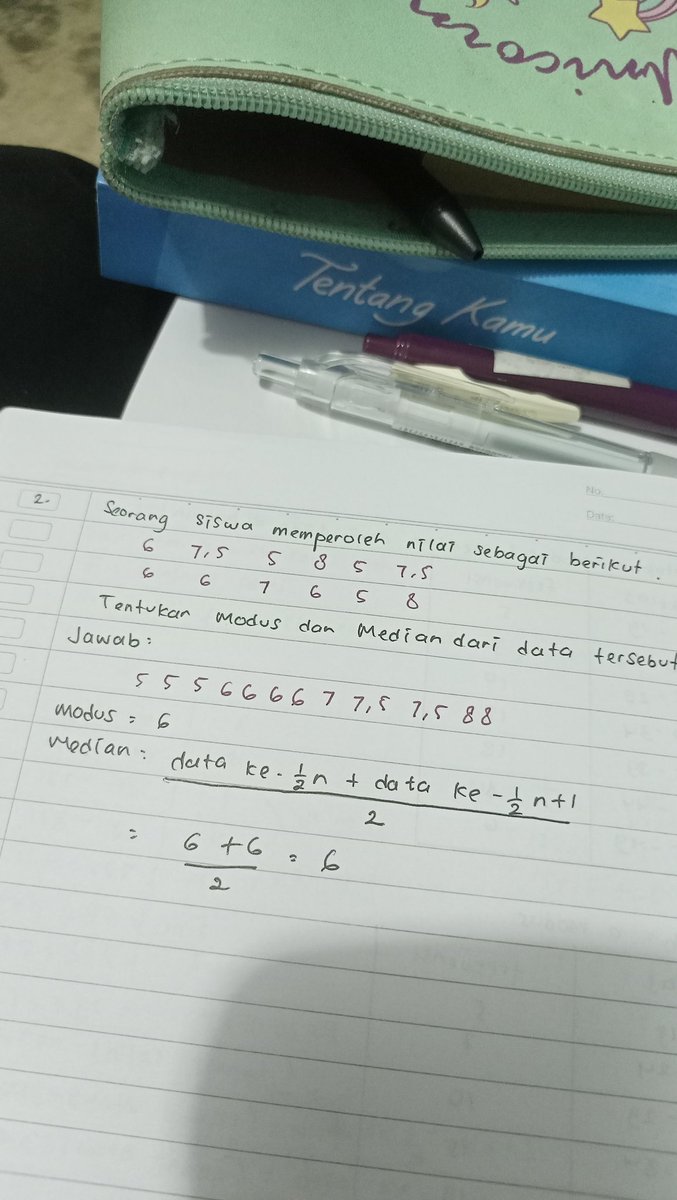 unicorn
Tentang Kamu
No.
Date:
2.
Seorang siswa memperoleh nilai sebagai berikut.
6 7,5 5 8 5 7,5
6 6 7 6 5 8
Tentukan Modus dan Median dari data tersebut
Jawab:
5 5 5 6 6 6 6 7 7,5 7,5 8 8
Modus = 6
Median : data ke - 1/2 n + data ke - 1/2 n+1
2
= 6 + 6 = 6
2